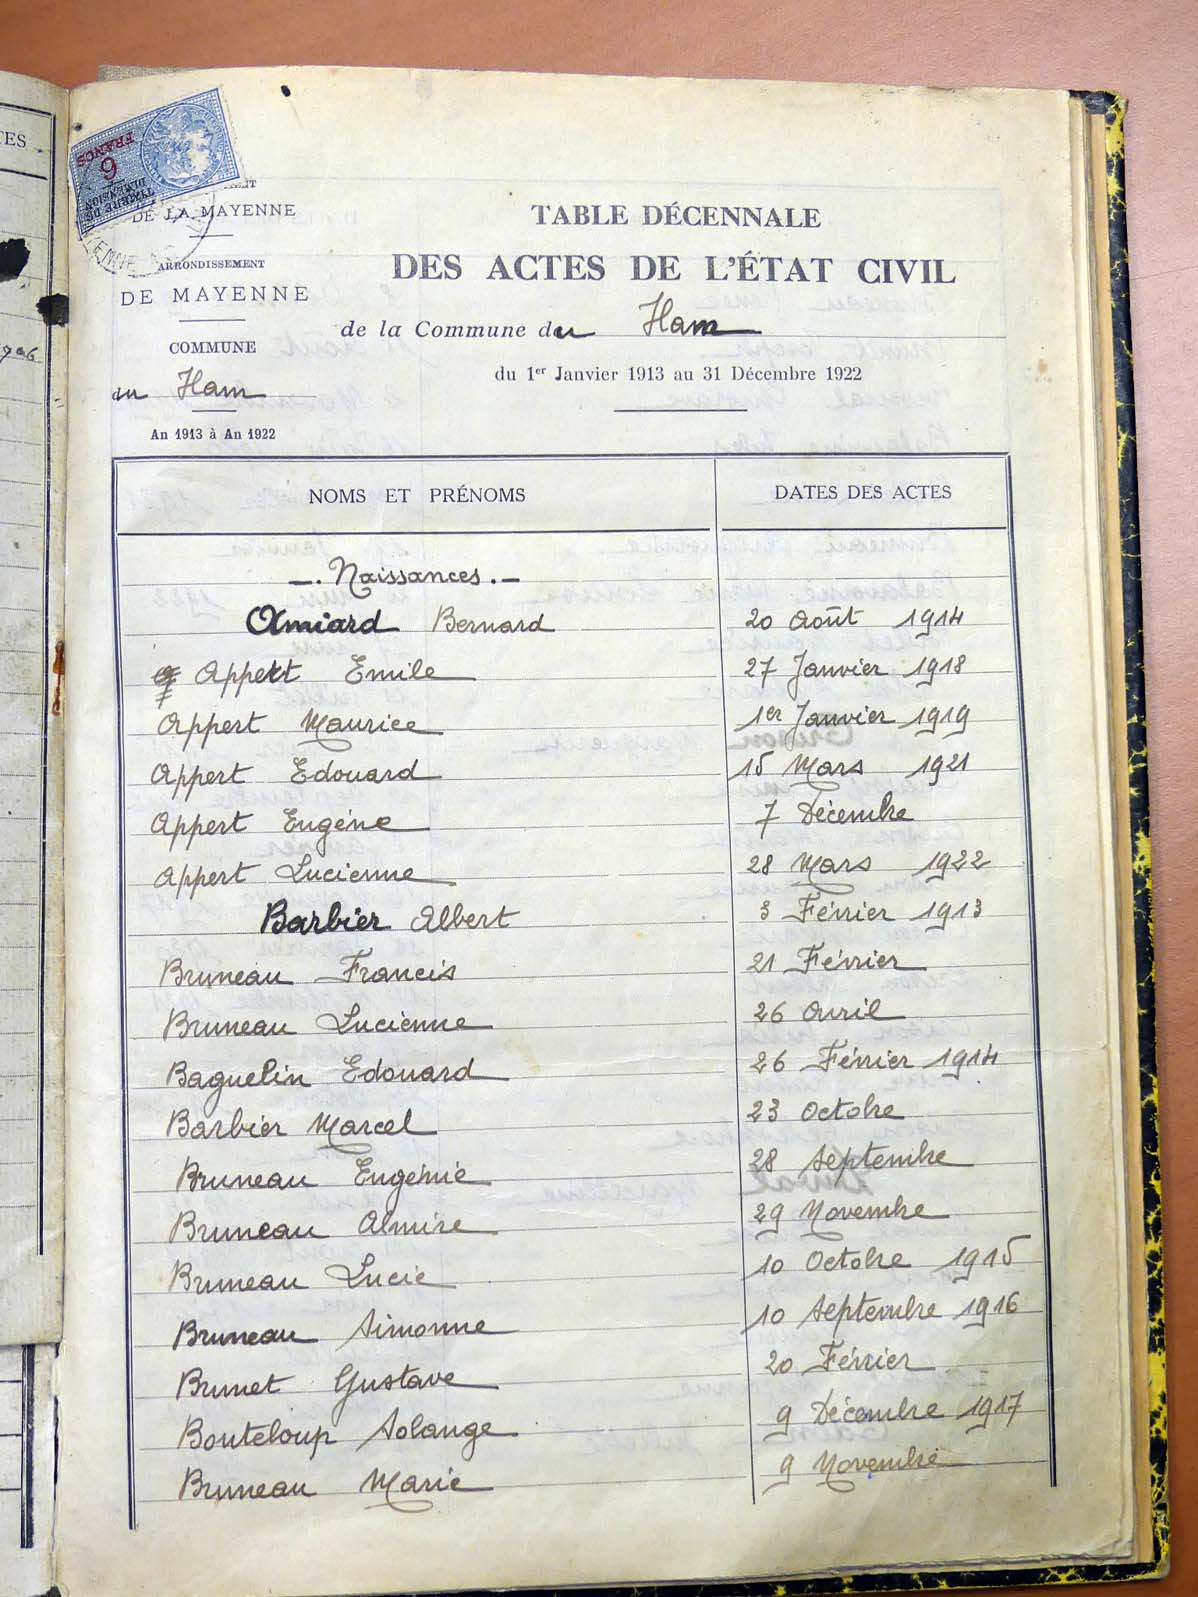 TES
6
FRANCS
TIMBRE DE
DIMENSION
DE LA MAYENNE
ARRONDISSEMENT
DE MAYENNE
COMMUNE
du Ham
An 1913 à An 1922
TABLE DÉCENNALE
DES ACTES DE L'ÉTAT CIVIL
de la Commune du Ham
du 1er Janvier 1913 au 31 Décembre 1922
NOMS ET PRÉNOMS DATES DES ACTES
-. Naissances. -
Amiard Bernard 20 Août 1914
Appert Emile 27 Janvier 1918
Appert Maurice 1er Janvier 1919
Appert Edouard 15 Mars 1921
Appert Eugène 7 Décembre
Appert Lucienne 28 Mars 1922
Barbier Albert 3 Février 1913
Bruneau Francis 21 Février
Bruneau Lucienne 26 Avril
Baguelin Edouard 26 Février 1914
Barbier Marcel 23 Octobre
Bruneau Eugénie 28 Septembre
Bruneau Almire 29 Novembre
Bruneau Lucie 10 Octobre 1915
Bruneau Simonne 10 Septembre 1916
Brunet Gustave 20 Février
Bouteloup Solange 9 Décembre 1917
Bruneau Marie 9 Novembre